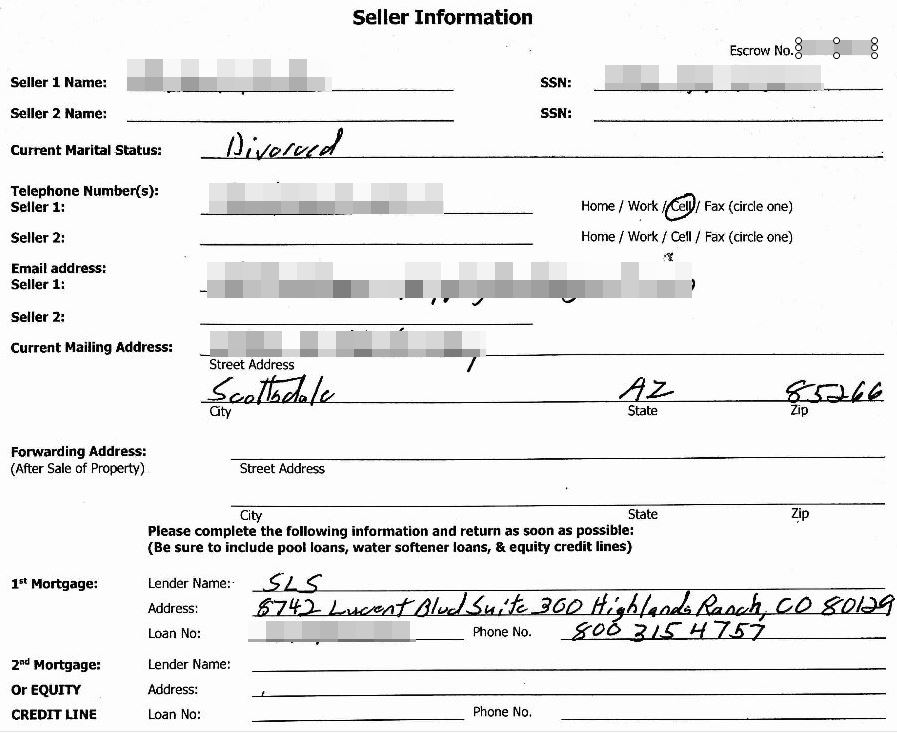 Seller Information
Escrow No.
Seller 1 Name: SSN:
Seller 2 Name: SSN:
Current Marital Status: Divorced
Telephone Number(s):
Seller 1: Home / Work / Cell / Fax (circle one)
Seller 2: Home / Work / Cell / Fax (circle one)
Email address:
Seller 1:
Seller 2:
Current Mailing Address:
Street Address
Scottsdale AZ 85266
City State Zip
Forwarding Address:
(After Sale of Property) Street Address
City State Zip
Please complete the following information and return as soon as possible:
(Be sure to include pool loans, water softener loans, & equity credit lines)
1st Mortgage: Lender Name: SLS
Address: 8742 Lucent Blvd Suite 300 Highlands Ranch, CO 80129
Loan No: Phone No. 800 315 4757
2nd Mortgage: Lender Name:
Or EQUITY Address:
CREDIT LINE Loan No: Phone No.